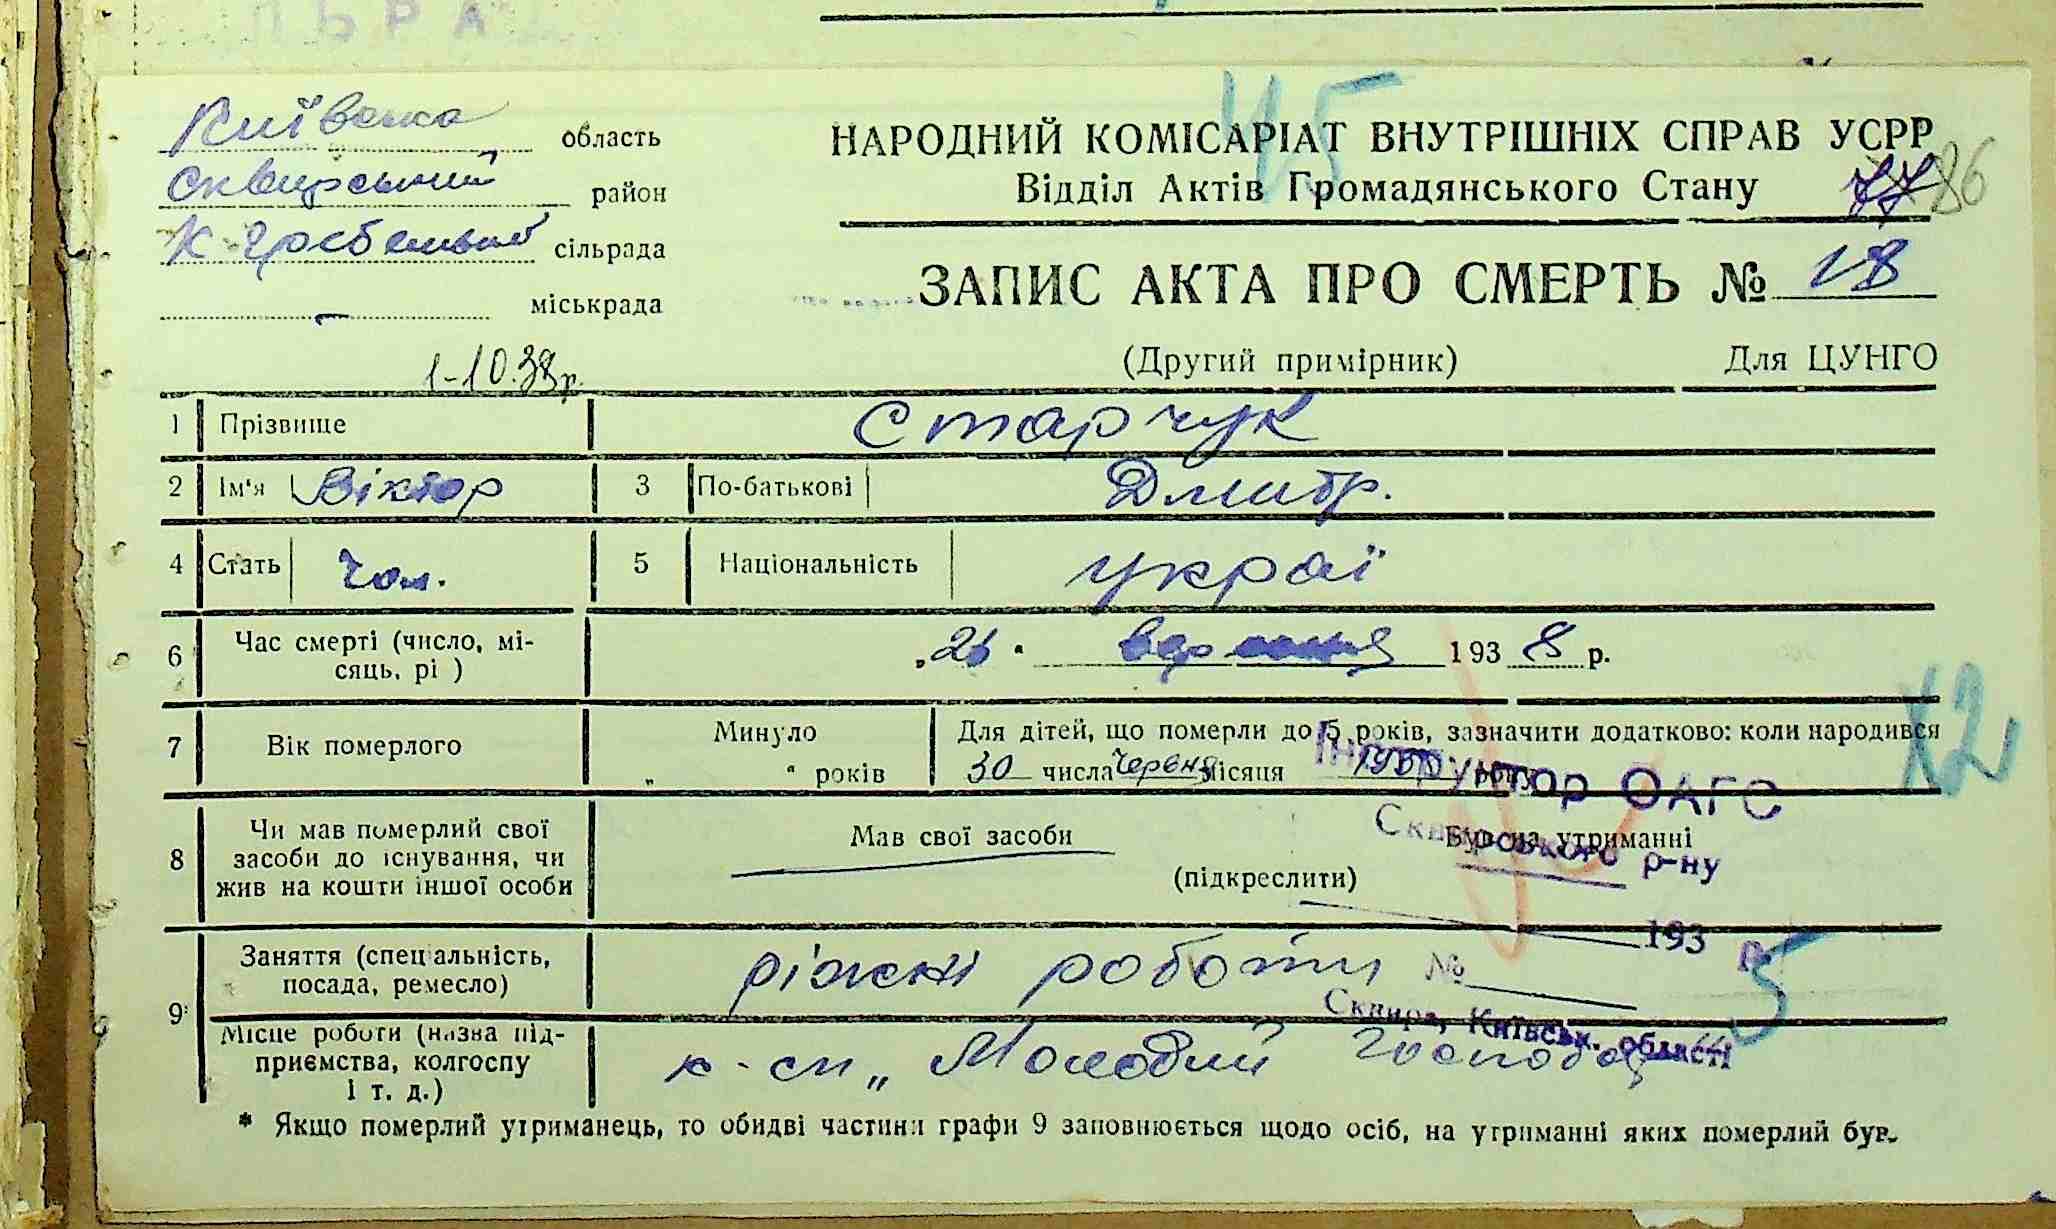 45
Київська область
Сквирський район
К-Гребельной сільрада
- міськрада
НАРОДНИЙ КОМІСАРІАТ ВНУТРІШНІХ СПРАВ УСРР
Відділ Актів Громадянського Стану 77 86
ЗАПИС АКТА ПРО СМЕРТЬ № 18
1-10.38р. (Другий примірник) Для ЦУНГО
1 Прізвище Старчук
2 Ім'я Віктор 3 По-батькові Дмитр.
4 Стать Чол. 5 Національність украї
6 Час смерті (число, мі-
сяць, рі ) „26“ вересня 1938 р.
7 Вік померлого Минуло
„ “ років
Для дітей, що померли до 5 років, зазначити додатково: коли народився
30 числа Червня місяця року
12
Інструктор ОАГС
Сквирського р-ну
193 р.
№
Сквира, Київськ. області
8 Чи мав померлий свої
засоби до існування, чи
жив на кошти іншої особи
Мав свої засоби Був на утриманні
(підкреслити)
9 Заняття (спеціальність,
посада, ремесло) ріжні роботи
5
Місце роботи (назва під-
приємства, колгоспу
і т. д.) к-сп „Молодий Господар“
* Якщо померлий утриманець, то обидві частини графи 9 заповнюється щодо осіб, на утриманні яких померлий був.